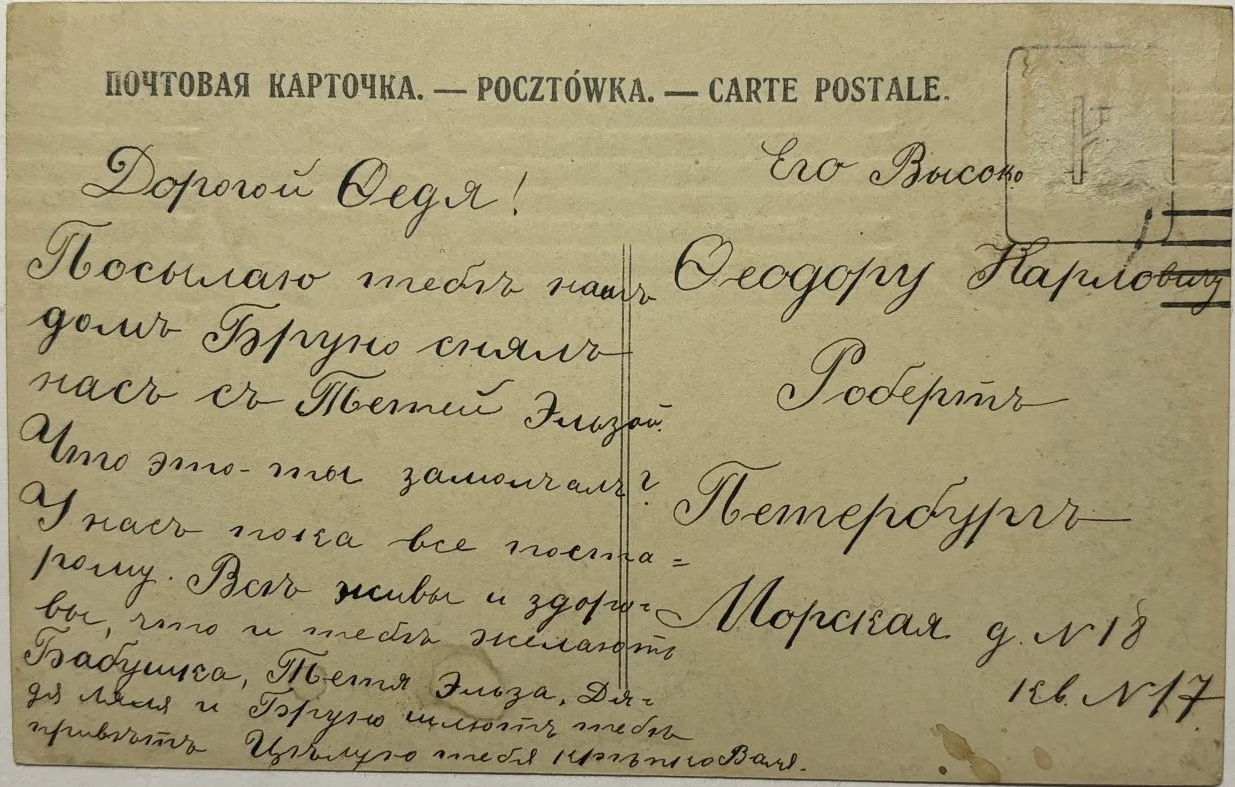 ПОЧТОВАЯ КАРТОЧКА. — POCZTÓWKA. — CARTE POSTALE.
Дорогой Ѳедя!
Посылаю тебѣ нашъ
домъ Бруно снялъ
насъ съ Тетей Эльзой.
Что это-ты замолчалъ?
У насъ пока все поста=
рому. Всѣ живы и здоро=
вы, что и тебѣ желаютъ
Бабушка, Тетя Эльза, Дя=
дя Ляля и Бруно шлютъ тебѣ
привѣтъ Цѣлую тебя крѣпко Валя.
Его Высоко
Ѳеодору Карловичу
Робертъ
Петербургъ
Морская д. № 18
кв. № 17.